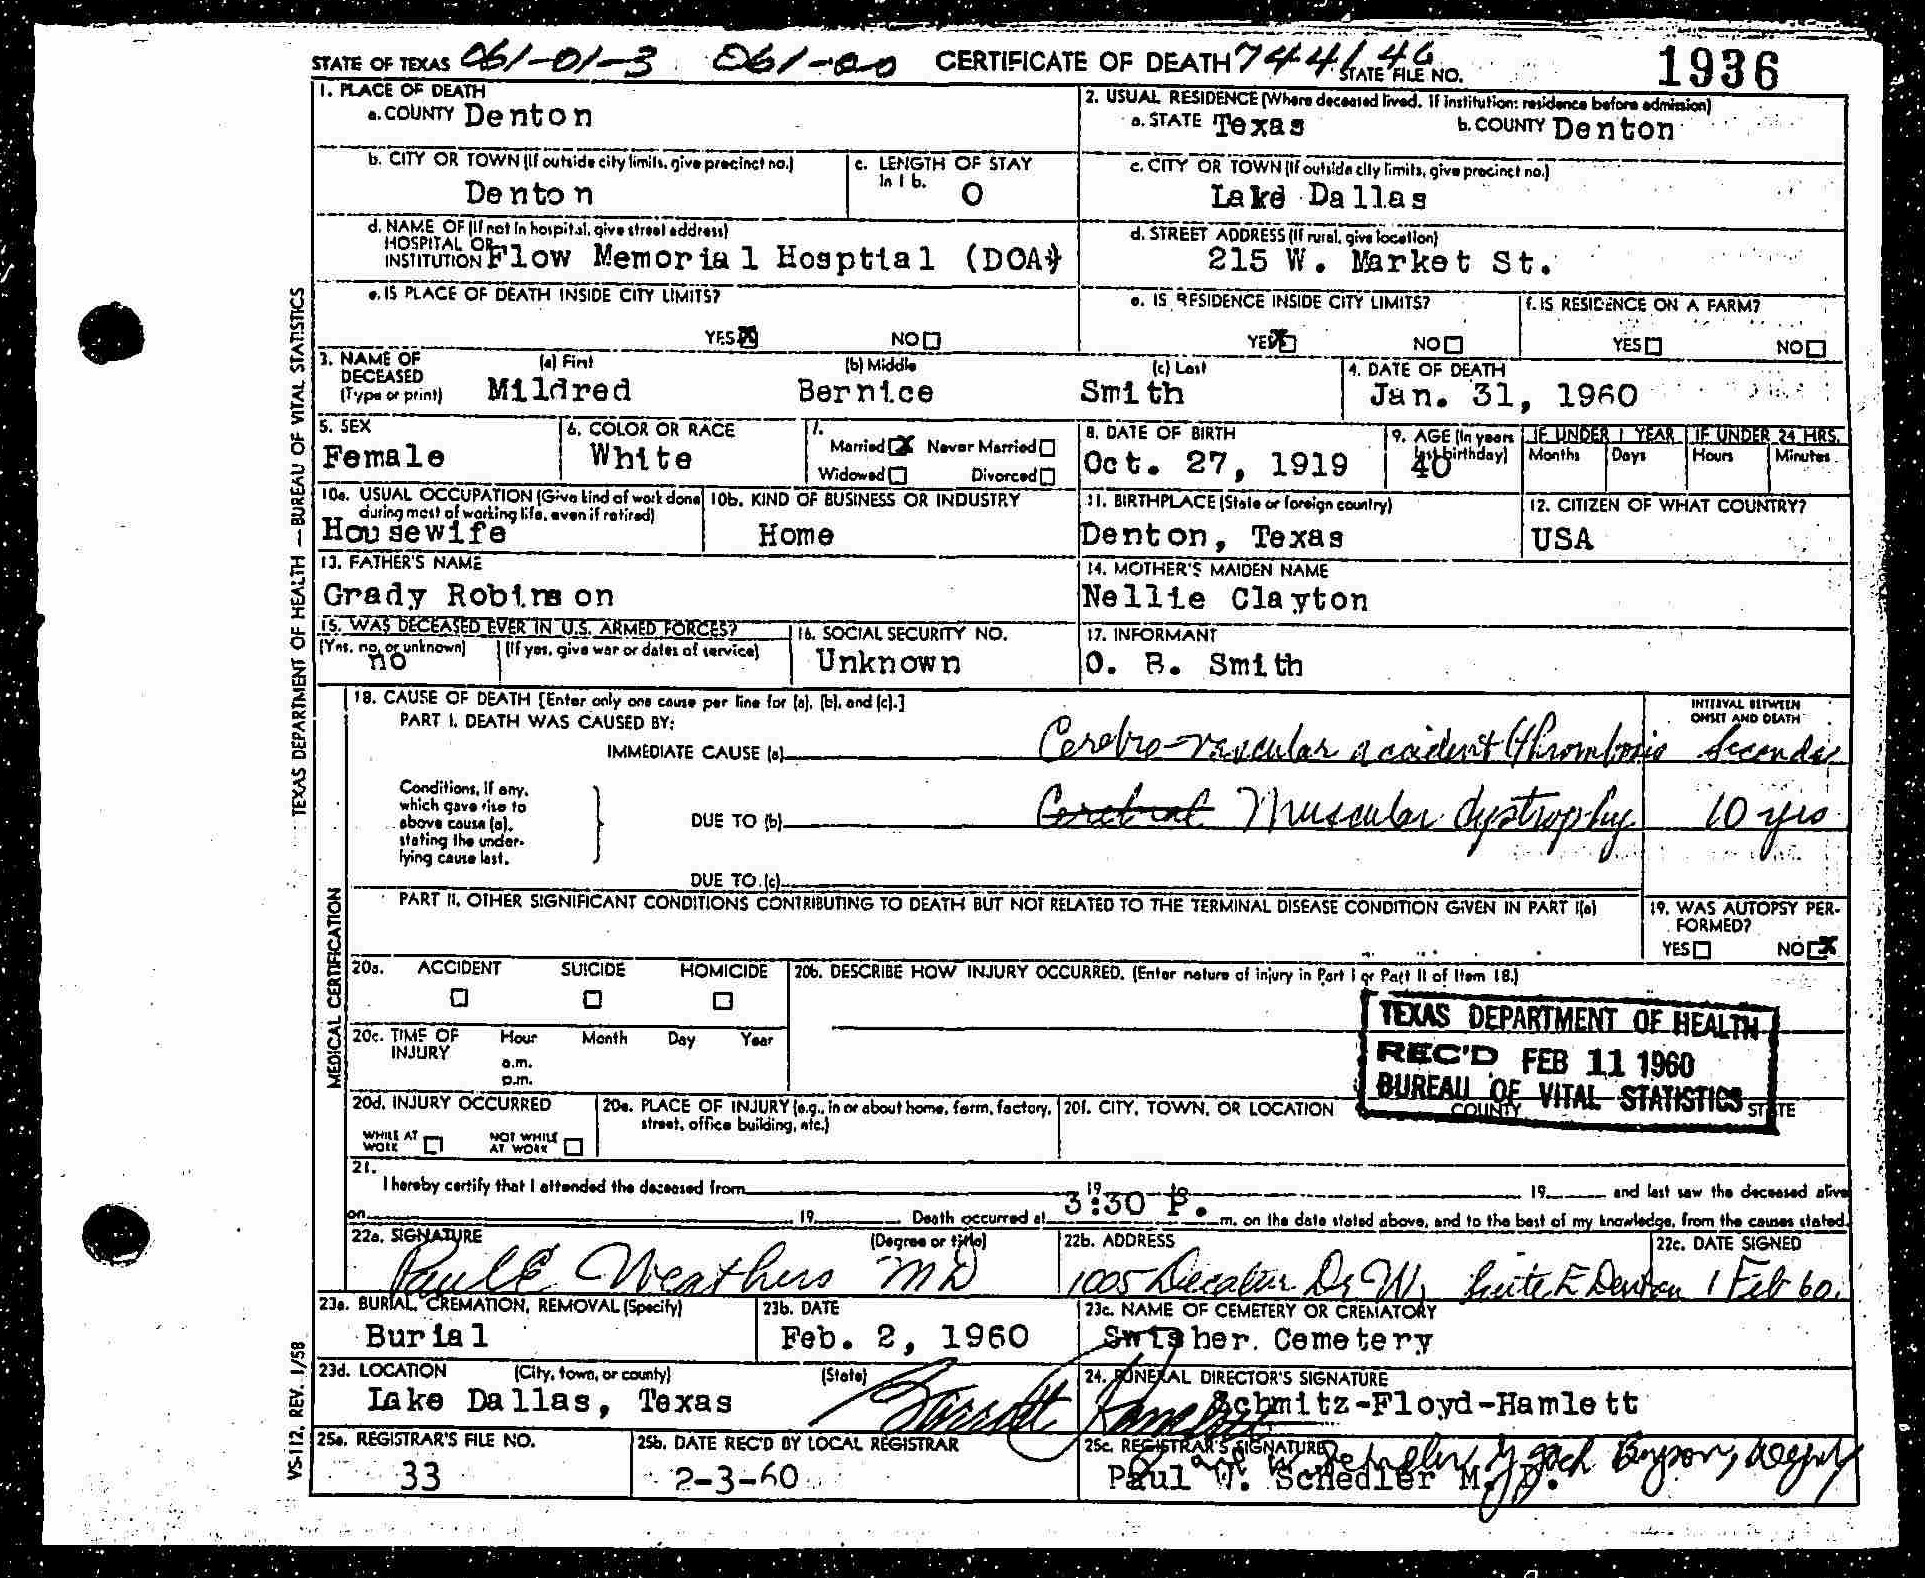 STATE OF TEXAS 061-01-3 061-00 CERTIFICATE OF DEATH 744146 STATE FILE NO. 1936
1. PLACE OF DEATH
a. COUNTY Denton
2. USUAL RESIDENCE (Where deceased lived. If institution: residence before admission)
a. STATE Texas b. COUNTY Denton
b. CITY OR TOWN (If outside city limits, give precinct no.)
Denton
c. LENGTH OF STAY
In 1 b. 0
c. CITY OR TOWN (If outside city limits, give precinct no.)
Lake Dallas
d. NAME OF (If not in hospital, give street address)
HOSPITAL OR
INSTITUTION Flow Memorial Hosptial (DOA)
d. STREET ADDRESS (If rural, give location)
215 W. Market St.
e. IS PLACE OF DEATH INSIDE CITY LIMITS?
YES NO
e. IS RESIDENCE INSIDE CITY LIMITS?
YES NO
f. IS RESIDENCE ON A FARM?
YES NO
3. NAME OF
DECEASED
(Type or print)
(a) First (b) Middle (c) Last
Mildred Bernice Smith
4. DATE OF DEATH
Jan. 31, 1960
5. SEX
Female
6. COLOR OR RACE
White
7.
Married X Never Married
Widowed Divorced
8. DATE OF BIRTH
Oct. 27, 1919
9. AGE (In years
last birthday)
40
IF UNDER 1 YEAR
Months Days
IF UNDER 24 HRS.
Hours Minutes
10a. USUAL OCCUPATION (Give kind of work done
during most of working life, even if retired)
Housewife
10b. KIND OF BUSINESS OR INDUSTRY
Home
11. BIRTHPLACE (State or foreign country)
Denton, Texas
12. CITIZEN OF WHAT COUNTRY?
USA
13. FATHER'S NAME
Grady Robinson
14. MOTHER'S MAIDEN NAME
Nellie Clayton
15. WAS DECEASED EVER IN U.S. ARMED FORCES?
(Yes, no, or unknown) (If yes, give war or dates of service)
no
16. SOCIAL SECURITY NO.
Unknown
17. INFORMANT
O. B. Smith
18. CAUSE OF DEATH [Enter only one cause per line for (a), (b), and (c).]
PART I. DEATH WAS CAUSED BY:
INTERVAL BETWEEN
ONSET AND DEATH
IMMEDIATE CAUSE (a) Cerebro-vascular accident (thrombosis Seconds
Conditions, if any,
which gave rise to
above cause (a),
stating the under-
lying cause last.
DUE TO (b) Cerebral Muscular dystrophy 10 yrs
DUE TO (c)
PART II. OTHER SIGNIFICANT CONDITIONS CONTRIBUTING TO DEATH BUT NOT RELATED TO THE TERMINAL DISEASE CONDITION GIVEN IN PART I(a)
19. WAS AUTOPSY PER-
FORMED?
YES NO X
20a. ACCIDENT SUICIDE HOMICIDE
20b. DESCRIBE HOW INJURY OCCURRED. (Enter nature of injury in Part I or Part II of Item 18.)
TEXAS DEPARTMENT OF HEALTH
REC'D FEB 11 1960
BUREAU OF VITAL STATISTICS
20c. TIME OF
INJURY
Hour Month Day Year
a.m.
p.m.
20d. INJURY OCCURRED
WHILE AT
WORK
NOT WHILE
AT WORK
20e. PLACE OF INJURY (e.g., in or about home, farm, factory,
street, office building, etc.)
20f. CITY, TOWN, OR LOCATION COUNTY STATE
21.
I hereby certify that I attended the deceased from 19 to 19 and last saw the deceased alive
on 19 Death occurred at 3:30 P. m. on the date stated above, and to the best of my knowledge, from the causes stated.
22a. SIGNATURE (Degree or title)
Paul E Weathers MD
22b. ADDRESS
1005 Decatur Dr W, Suite E Denton
22c. DATE SIGNED
1 Feb 60.
23a. BURIAL, CREMATION, REMOVAL (Specify)
Burial
23b. DATE
Feb. 2, 1960
23c. NAME OF CEMETERY OR CREMATORY
Swisher Cemetery
23d. LOCATION (City, town, or county) (State)
Lake Dallas, Texas
24. FUNERAL DIRECTOR'S SIGNATURE
Schmitz-Floyd-Hamlett
25a. REGISTRAR'S FILE NO.
33
25b. DATE REC'D BY LOCAL REGISTRAR
2-3-60
25c. REGISTRAR'S SIGNATURE
Paul W. Schedler M. D.
TEXAS DEPARTMENT OF HEALTH — BUREAU OF VITAL STATISTICS
MEDICAL CERTIFICATION
VS-112, REV. 1/58